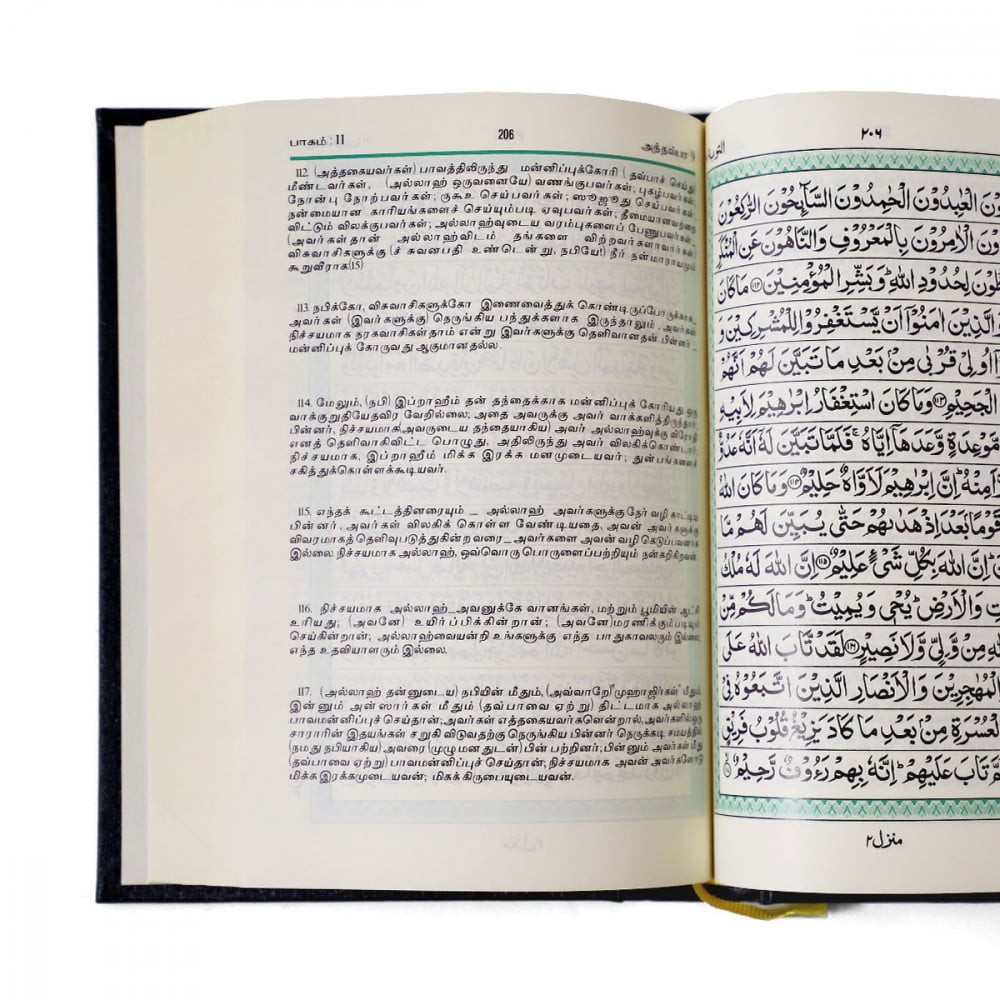 பாகம் : 11
206
அத்தவ்பா 9
112. (அத்தகையவர்கள்) பாவத்திலிருந்து மன்னிப்புக்கோரி (தவ்பாச் செய்து)
மீண்டவர்கள், (அல்லாஹ் ஒருவனையே) வணங்குபவர்கள்; புகழ்பவர்கள்;
நோன்பு நோற்பவர்கள்; ருகூஉ செய்பவர்கள்; ஸுஜூது செய்பவர்கள்;
நன்மையான காரியங்களைச் செய்யும்படி ஏவுபவர்கள்; தீமையானவற்றை
விட்டும் விலக்குபவர்கள்; அல்லாஹ்வுடைய வரம்புகளைப் பேணுபவர்கள்
(அவர்கள்தான் அல்லாஹ்விடம் தங்களை விற்றவர்களாவார்கள்)
விசுவாசிகளுக்கு (ச் சுவனபதி உண்டென்று, நபியே!) நீர் நன்மாராயமும்
கூறுவீராக(15)
113. நபிக்கோ, விசுவாசிகளுக்கோ இணைவைத்துக் கொண்டிருப்போருக்காக,
அவர்கள் (இவர்களுக்கு) நெருங்கிய பந்துக்களாக இருந்தாலும் அவர்கள்
நிச்சயமாக நரகவாசிகள்தாம் என்று இவர்களுக்கு தெளிவானதன் பின்னர் _
மன்னிப்புக் கோருவது ஆகுமானதல்ல.
114. மேலும், (நபி) இப்றாஹீம் தன் தந்தைக்காக மன்னிப்புக் கோரியது ஒரு
வாக்குறுதியேதவிர வேறில்லை; அதை அவருக்கு அவர் வாக்களித்திருந்தார்;
பின்னர், நிச்சயமாக(அவருடைய தந்தையாகிய) அவர் அல்லாஹ்வுக்கு விரோதி
எனத் தெளிவாகிவிட்ட பொழுது, அதிலிருந்து அவர் விலகிக்கொண்டார்;
நிச்சயமாக, இப்றாஹீம் மிக்க இரக்க மனமுடையவர்; துன்பங்களைச்
சகித்துக்கொள்ளக்கூடியவர்.
115. எந்தக் கூட்டத்தினரையும் _ அல்லாஹ் அவர்களுக்குநேர் வழி காட்டிய
பின்னர், அவர்கள் விலகிக் கொள்ள வேண்டியதை, அவன் அவர்களுக்கு
விவரமாகத் தெளிவுபடுத்துகின்றவரை_ அவர்களை அவன் வழி கெடுப்பவனாக
இல்லை நிச்சயமாக அல்லாஹ், ஒவ்வொரு பொருளைப்பற்றியும் நன்கறிகிறவன்.
116. நிச்சயமாக அல்லாஹ்_அவனுக்கே வானங்கள், மற்றும் பூமியின் ஆட்சி
உரியது; (அவனே) உயிர்ப்பிக்கின்றான்; (அவனே)மரணிக்கும்படியும்
செய்கின்றான்; அல்லாஹ்வையன்றி உங்களுக்கு எந்த பாதுகாவலரும் இல்லை,
எந்த உதவியாளரும் இல்லை.
117. (அல்லாஹ் தன்னுடைய) நபியின் மீதும், (அவ்வாறே)"முஹாஜிர்கள்" மீதும்,
இன்னும் அன்ஸார்கள் மீதும் (தவ்பாவை ஏற்று) திட்டமாக அல்லாஹ்
பாவமன்னிப்புச் செய்தான்;அவர்கள் எத்தகையவர்களென்றால்,அவர்களில் ஒரு
சாராரின் இதயங்கள் சறுகி விடுவதற்கு நெருங்கிய பின்னர் நெருக்கடி சமயத்தில்
(நமது நபியாகிய) அவரை (முழுமனதுடன்) பின் பற்றினர்; பின்னும் அவர்கள் மீது
(தவ்பாவை ஏற்று) பாவமன்னிப்புச் செய்தான்; நிச்சயமாக அவன் அவர்களோடு
மிக்க இரக்கமுடையவன்; மிகக்கிருபையுடையவன்.
٢٠٦
التوبة
الْعٰبِدُوْنَ الْحٰمِدُوْنَ السَّآىِٕحُوْنَ الرّٰكِعُوْنَ
الْاٰمِرُوْنَ بِالْمَعْرُوْفِ وَالنَّاهُوْنَ عَنِ الْمُنْكَرِ
لِحُدُوْدِ اللّٰهِ ؕ وَبَشِّرِ الْمُؤْمِنِيْنَ ﴿١١٢﴾ مَا كَانَ
الَّذِيْنَ اٰمَنُوْۤا اَنْ يَّسْتَغْفِرُوْا لِلْمُشْرِكِيْنَ وَ
اُولِيْ قُرْبٰى مِنْۢ بَعْدِ مَا تَبَيَّنَ لَهُمْ اَنَّهُمْ
الْجَحِيْمِ ﴿١١٣﴾ وَمَا كَانَ اسْتِغْفَارُ اِبْرٰهِيْمَ لِاَبِيْهِ
مَّوْعِدَةٍ وَّعَدَهَاۤ اِيَّاهُ ۚ فَلَمَّا تَبَيَّنَ لَهٗۤ اَنَّهٗ عَدُوٌّ
مِنْهُ ؕ اِنَّ اِبْرٰهِيْمَ لَاَوَّاهٌ حَلِيْمٌ ﴿١١٤﴾ وَمَا كَانَ اللّٰهُ
قَوْمًۢا بَعْدَ اِذْ هَدٰىهُمْ حَتّٰى يُبَيِّنَ لَهُمْ مَّا
اِنَّ اللّٰهَ بِكُلِّ شَيْءٍ عَلِيْمٌ ﴿١١٥﴾ اِنَّ اللّٰهَ لَهٗ مُلْكُ
وَالْاَرْضِ ؕ يُحْيٖ وَيُمِيْتُ ؕ وَمَا لَكُمْ مِّنْ
مِنْ وَّلِيٍّ وَّلَا نَصِيْرٍ ﴿١١٦﴾ لَقَدْ تَّابَ اللّٰهُ عَلَى
وَالْمُهٰجِرِيْنَ وَالْاَنْصَارِ الَّذِيْنَ اتَّبَعُوْهُ فِيْ
الْعُسْرَةِ مِنْۢ بَعْدِ مَا كَادَ يَزِيْغُ قُلُوْبُ فَرِيْقٍ
تَابَ عَلَيْهِمْ ؕ اِنَّهٗ بِهِمْ رَءُوْفٌ رَّحِيْمٌ
منزل ٢